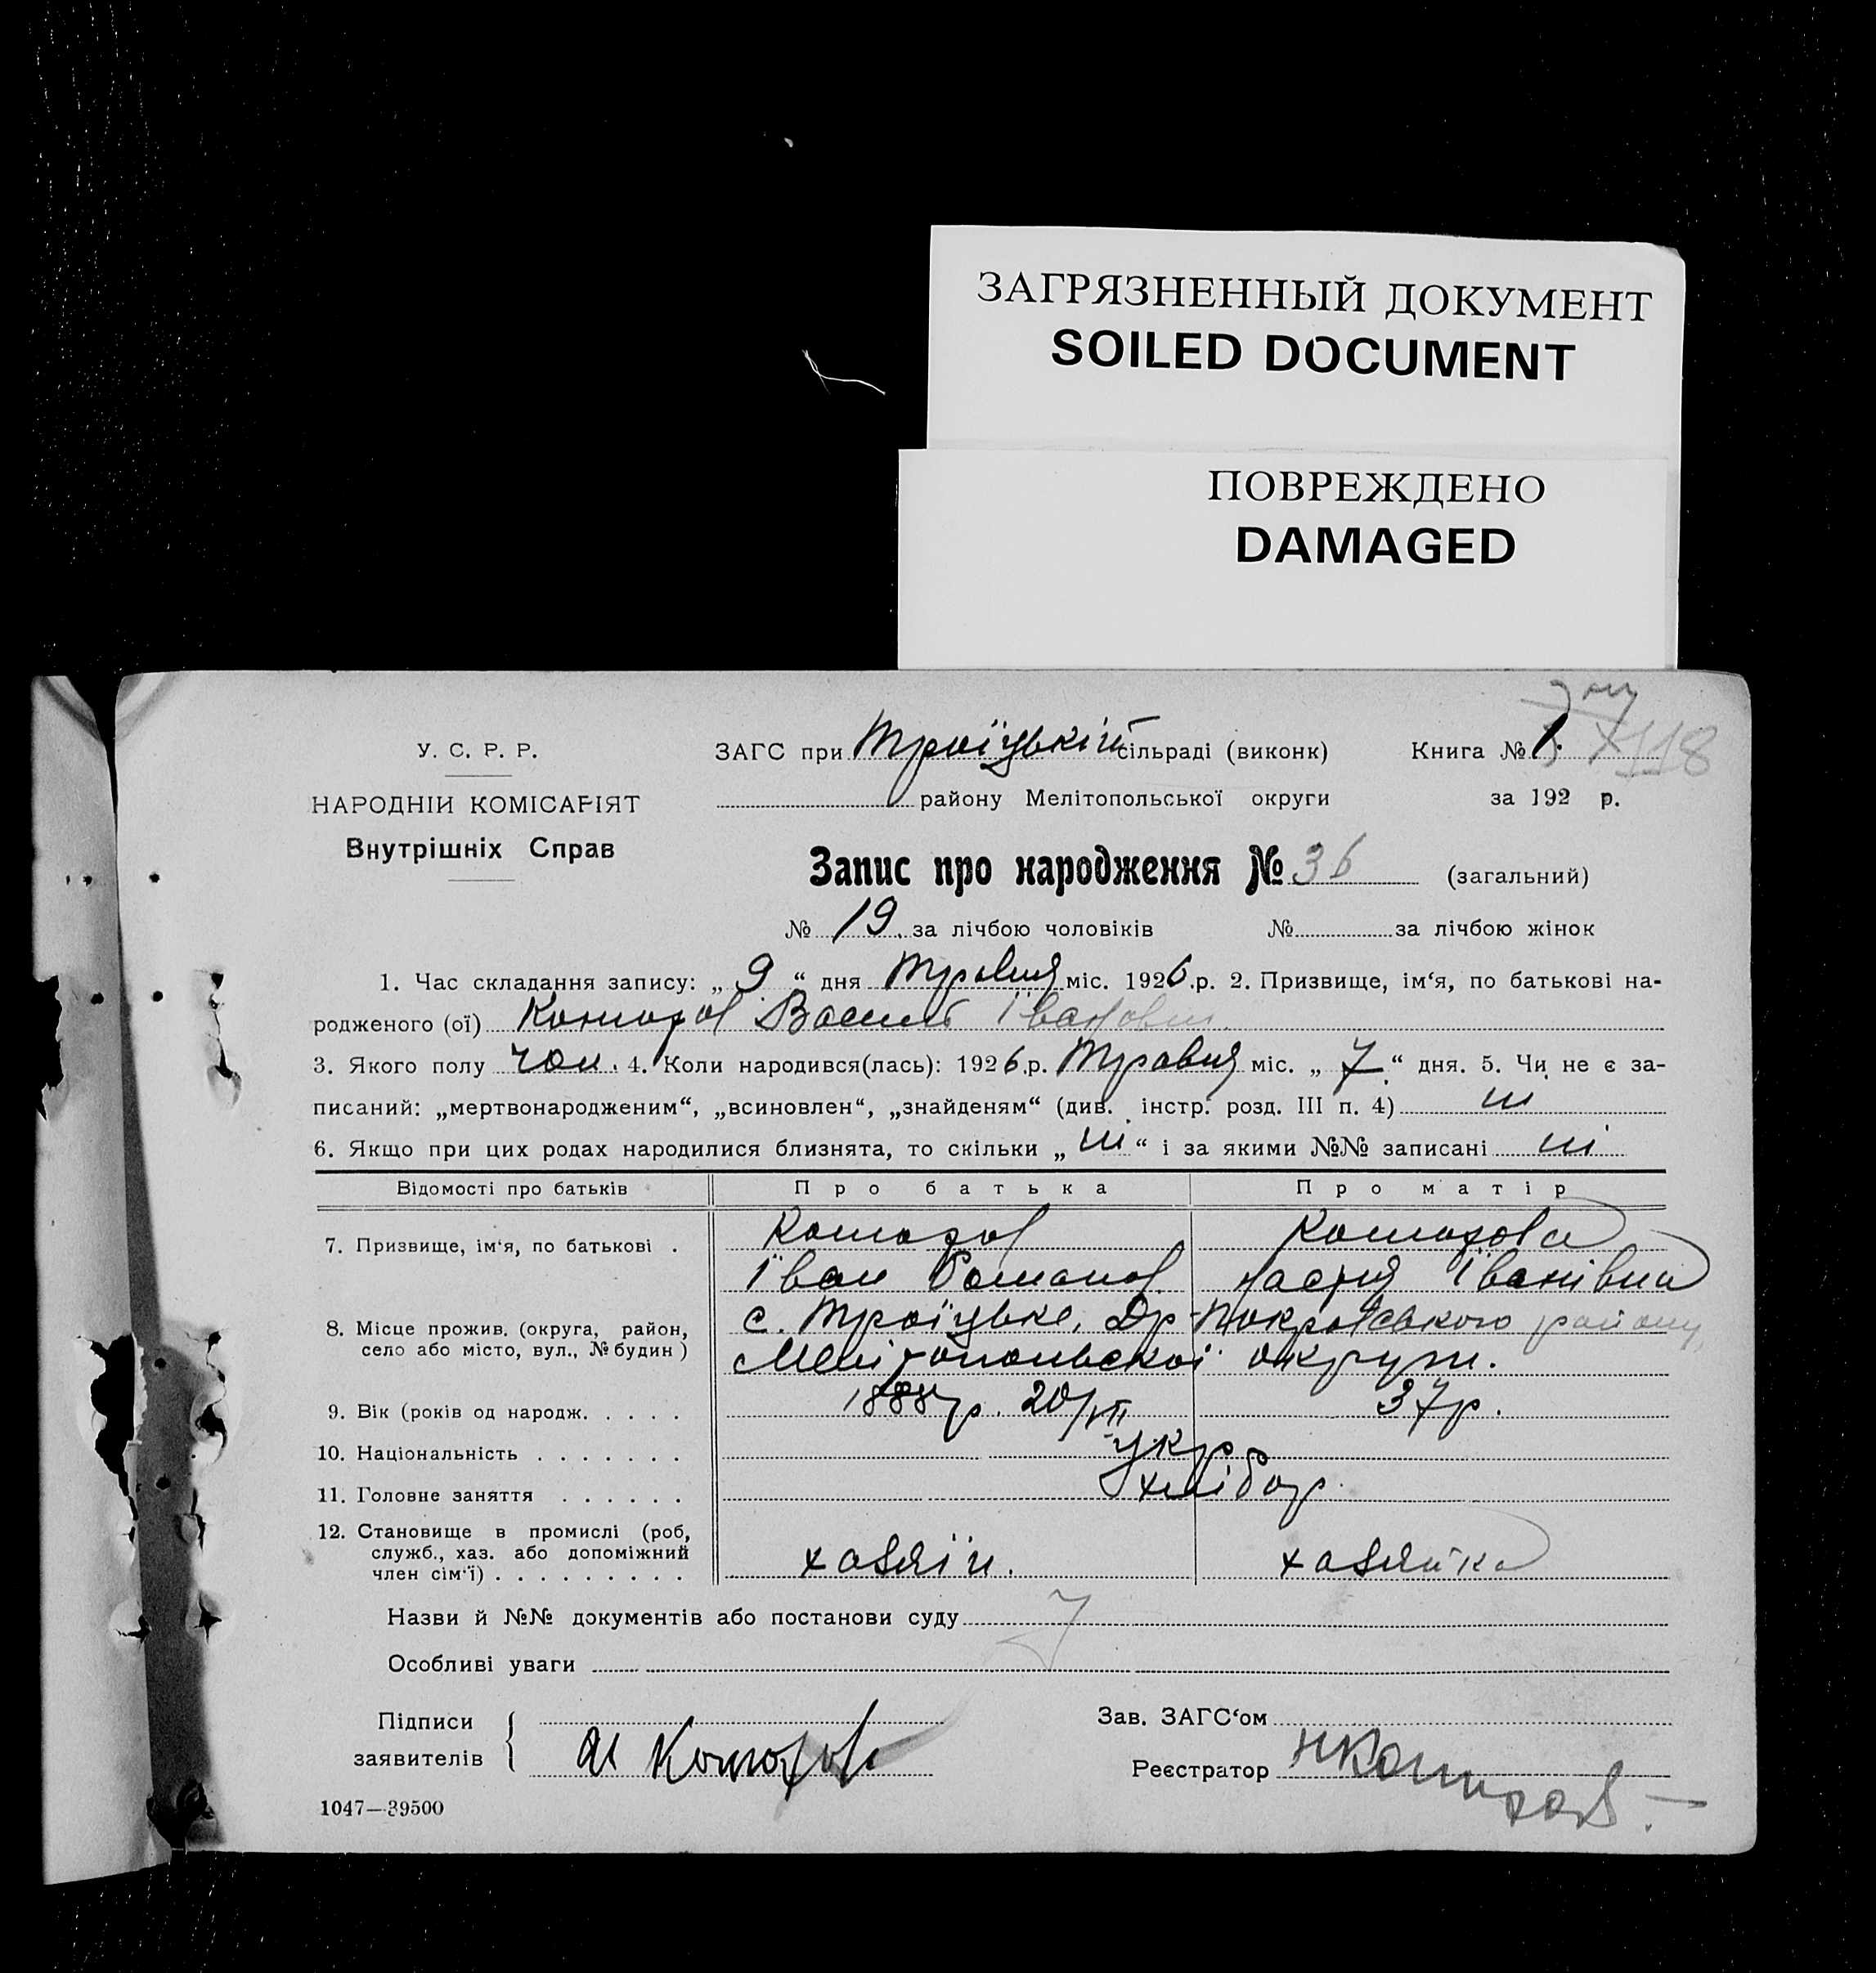 ЗАГРЯЗНЕННЫЙ ДОКУМЕНТ
SOILED DOCUMENT
ПОВРЕЖДЕНО
DAMAGED
118
У. С. Р. Р.
НАРОДНІЙ КОМІСАРІЯТ
Внутрішніх Справ
ЗАГС при Троїцькій сільраді (виконк) Книга № 1
району Мелітопольської округи за 192 р.
Запис про народження № 36 (загальний)
№ 19. за лічбою чоловіків № за лічбою жінок
1. Час складання запису: „ 9 “ дня Травня міс. 1926 р. 2. Призвище, ім‘я, по батькові на-
родженого (ої) Василь Іванович
3. Якого полу чол. 4. Коли народився(лась): 1926 р. Травня міс. „ 7 “ дня. 5. Чи не є за-
писаний: „мертвонародженим“, „всиновлен“, „знайденям“ (див. інстр. розд. III п. 4) ні
6. Якщо при цих родах народилися близнята, то скільки „ ні “ і за якими №№ записані ні
Відомості про батьків Про батька Про матір
7. Призвище, ім‘я, по батькові .
Іван Романов. Настя Іванівна
8. Місце прожив. (округа, район, село або місто, вул., № будин) с. Троїцьке, Др-Покровського району,
Мелітопольської округи.
9. Вік (років од народж. . . . . 1888 р. 20/VII 37 р.
10. Національність . . . . . . . укр
11. Головне заняття . . . . . . хлібор.
12. Становище в промислі (роб, служб., хаз. або допоміжний член сім‘ї) . . . . . . . . . хазяїн. хазяйка
Назви й №№ документів або постанови суду
Особливі уваги
Підписи
заявителів
Зав. ЗАГС‘ом
Реєстратор
1047—39500